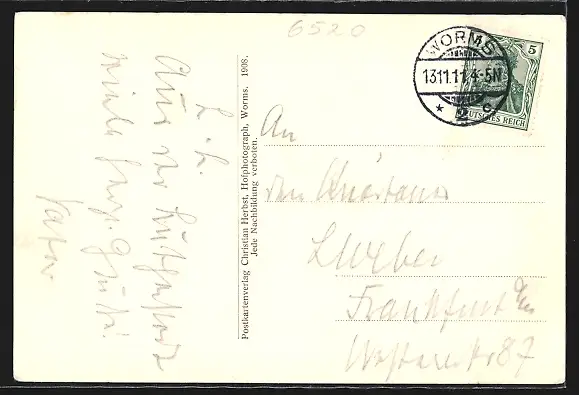 6520
WORMS
13.11.11.4-5N
* 2 c
5
DEUTSCHES REICH
L. E.
Aus der Lutherstadt
viele herz. Grüße!
Vater
Postkartenverlag Christian Herbst, Hofphotograph, Worms. 1908.
Jede Nachbildung verboten.
An
den
L. Weber
Frankfurt a/m
87